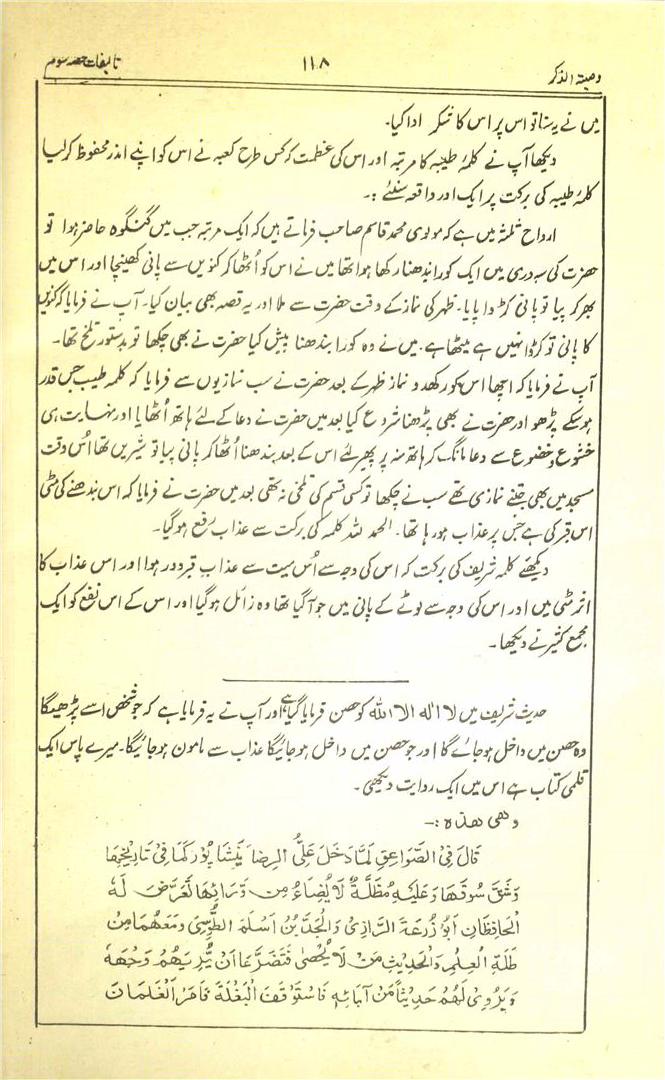 وصیۃ الذکر ۱۱۸ تالیفات حصہ سوم
میں نے یہ سنا تو اس پر اس کا شکر ادا کیا۔
دیکھا آپ نے کلمۂ طیبہ کا مرتبہ اور اس کی عظمت کہ کس طرح کعبہ نے اس کو اپنے اندر محفوظ کر لیا
کلمۂ طیبہ کی برکت پر ایک اور واقعہ سنئے :۔
ارواح ثلٰثہ میں ہے کہ مولوی محمد قاسم صاحب فرماتے ہیں کہ ایک مرتبہ جب میں گنگوہ حاضر ہوا تو
حضرت کی سہ دری میں ایک کورا بدھنا رکھا ہوا تھا میں نے اس کو اٹھا کر کنویں سے پانی کھینچا اور اس میں
بھر کر پیا تو پانی کڑوا پایا۔ ظہر کی نماز کے وقت حضرت سے ملا اور یہ قصہ بھی بیان کیا۔ آپ نے فرمایا کہ کنویں
کا پانی تو کڑوا نہیں ہے میٹھا ہے۔ میں نے وہ کورا بدھنا پیش کیا حضرت نے بھی چکھا تو بدستور تلخ تھا۔
آپ نے فرمایا کہ اچھا اس کو رکھدو نماز ظہر کے بعد حضرت نے سب نمازیوں سے فرمایا کہ کلمہ طیب جس قدر
ہو سکے پڑھو اور حضرت نے بھی پڑھنا شروع کیا بعد میں حضرت نے دعا کے لئے ہاتھ اُٹھایا اور نہایت ہی
خشوع و خضوع سے دعا مانگ کر ہاتھ منہ پر پھیر لئے اس کے بعد بدھنا اُٹھا کر پانی پیا تو شیریں تھا اُس وقت
مسجد میں بھی جتنے نمازی تھے سب نے چکھا تو کسی قسم کی تلخی نہ تھی بعد میں حضرت نے فرمایا کہ اس بدھنے کی مٹی
اس قبر کی ہے جس پر عذاب ہو رہا تھا۔ الحمد للہ کلمہ کی برکت سے عذاب رفع ہو گیا۔
دیکھئے کلمہ شریف کی برکت کہ اس کی وجہ سے اُس میت سے عذاب قبر دور ہوا اور اس عذاب کا
اثر مٹی میں اور اس کی وجہ سے لوٹے کے پانی میں جو آگیا تھا وہ زائل ہو گیا اور اس کے اس نفع کو ایک
مجمع کثیر نے دیکھا۔
حدیث شریف میں لا الٰہ الا اللہ کو حصن فرمایا گیا ہے اور آپ نے یہ فرمایا ہے کہ جو شخص اسے پڑھیگا
وہ حصن میں داخل ہو جائے گا اور جو حصن میں داخل ہو جائیگا عذاب سے مامون ہو جائیگا۔ میرے پاس ایک
قلمی کتاب ہے اس میں ایک روایت دیکھی۔
وھی ھذہ :۔
قَالَ فِی الصَّوَاعِقِ لَمَّا دَخَلَ عَلِیُّ الرِضَا نِیْشَا پُوْرَ کَمَا فِی تَارِیْخِھَا
وَشَقَّ سُوْقَھَا وَعَلَیْہِ مِظَلَّۃٌ لَا یُضَاءُ مِن وَّرَائِھَا تَعَرَّضَ لَہٗ
اَلْحَافِظَانِ اَبُوْ زُرْعَۃَ الرَّازِیْ وَالْجَدُّ بْنُ اَسْلَمَ الطُّوْسِیْ وَمَعَھُمَا مِنْ
طَلَبَۃِ الْعِلْمِ وَالْحَدِیْثِ مَنْ لَا یُحْصٰی فَتَضَرَّعَا اَنْ یُّرِیَھُمْ وَجْھَہٗ
وَیَرْوِیْ لَھُمْ حَدِیْثاً مِّنْ آبَائِہٖ فَاسْتَوْقَفَ الْبَغْلَۃَ فَامَرَ الْغَلْمَانَ